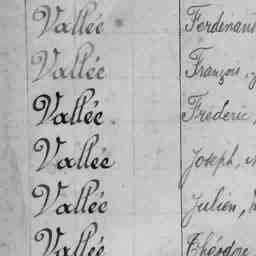 Vallée Ferdinand
Vallée François,
Vallée Frédéric,
Vallée Joseph,
Vallée Julien,
Vallée Théodore